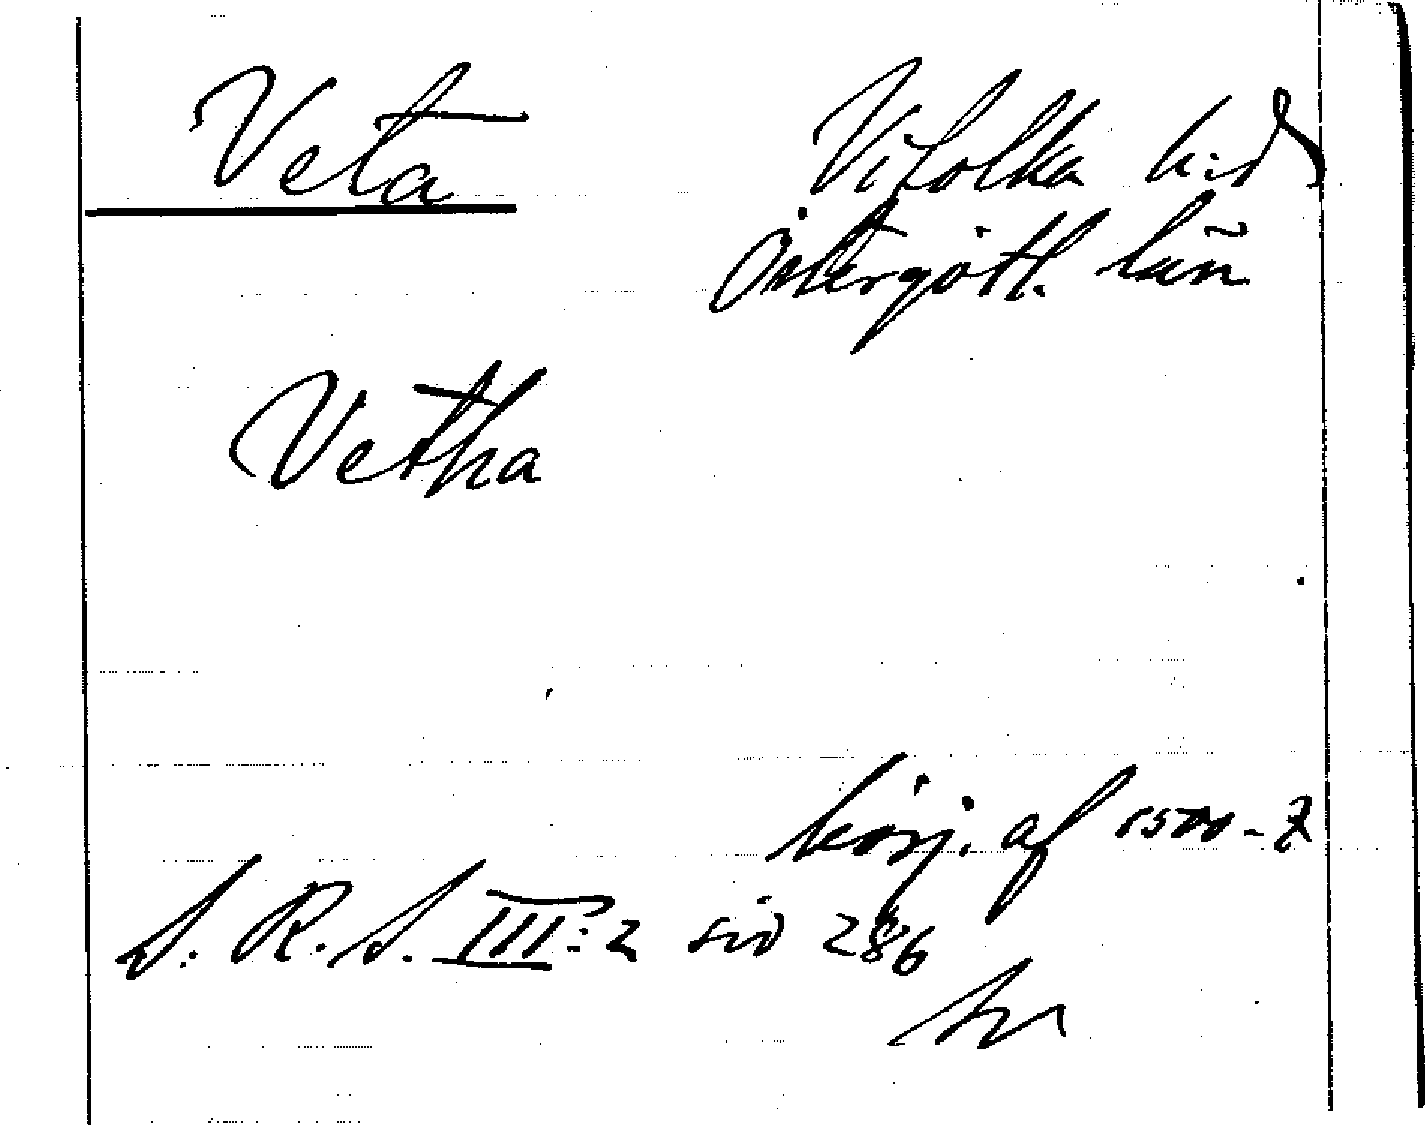 Veta Vifolka h:d
Östergötl. län
Vetha
börj. af 1500-t
S. R. S. III:2 sid 286